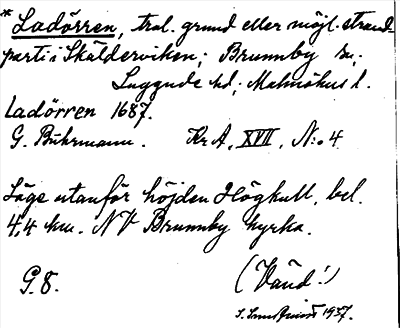 * Ladörren, trol. grund eller möjl. strand-
parti i Skälderviken; Brunnby sn;
Luggude hd; Malmöhus l.
Ladörren 1687.
G. Buhrmann. Kr A, XVII, N:o 4
Läge utanför höjden Högkull, bel.
4,4 km. NV Brunnby kyrka.
G.8. (Vänd!)
1937.